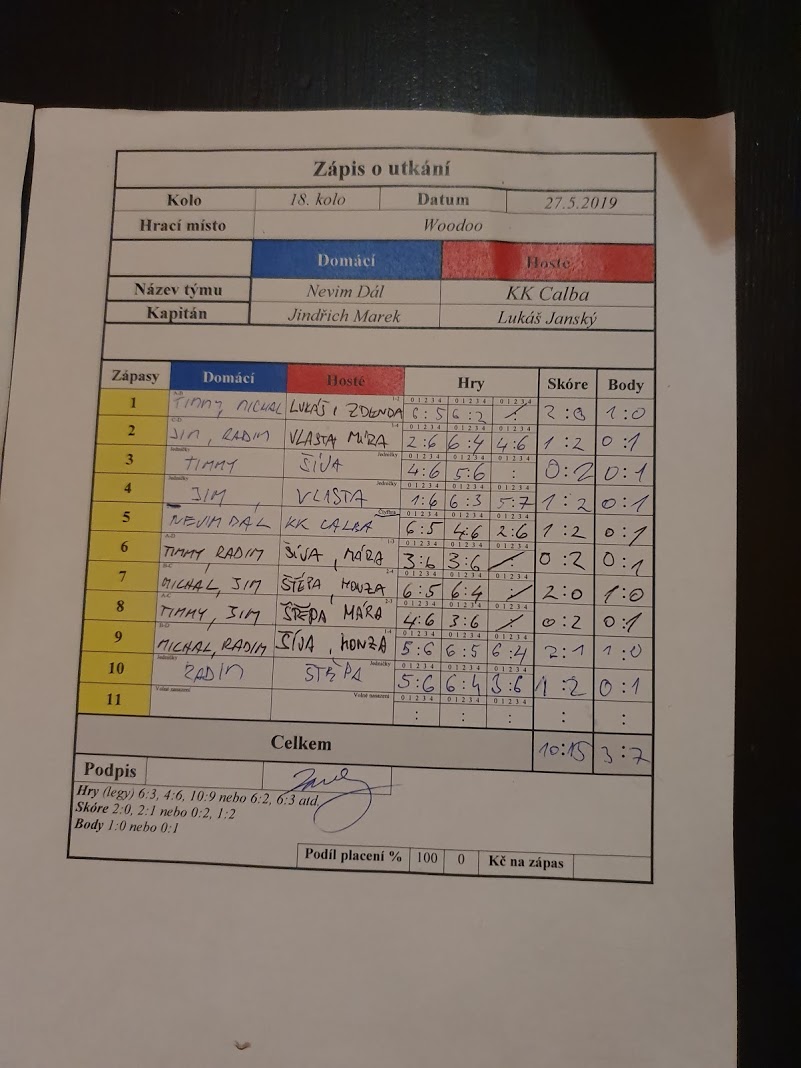 Zápis o utkání
Kolo 18. kolo Datum 27.5.2019
Hrací místo Woodoo
Domácí Hosté
Název týmu Nevim Dál KK Calba
Kapitán Jindřich Marek Lukáš Janský
Zápasy Domácí Hosté Hry Skóre Body
1 TIMMY, MICHAL LUKÁŠ, ZDENDA 6:5 6:2 : 2:0 1:0
2 JIM, RADIM VLASTA MÁRA 2:6 6:4 4:6 1:2 0:1
3 TIMMY SÍVA 4:6 5:6 : 0:2 0:1
4 JIM, VLASTA 1:6 6:3 5:7 1:2 0:1
5 NEVIM DAL KK CALBA 6:5 4:6 2:6 1:2 0:1
6 TIMMY RADIM SÍVA, MÁRA 3:6 3:6 : 0:2 0:1
7 MICHAL, JIM ŠTĚPA, HONZA 6:5 6:4 : 2:0 1:0
8 TIMMY, JIM ŠTĚPA MÁRA 4:6 3:6 : 0:2 0:1
9 MICHAL, RADIM SÍVA, HONZA 5:6 6:5 6:4 2:1 1:0
10 RADIM ŠTĚPA 5:6 6:4 3:6 1:2 0:1
11 : : : : :
Celkem 10:15 3:7
Podpis
Hry (legy) 6:3, 4:6, 10:9 nebo 6:2, 6:3 atd.
Skóre 2:0, 2:1 nebo 0:2, 1:2
Body 1:0 nebo 0:1
Podíl placení % 100 0 Kč na zápas